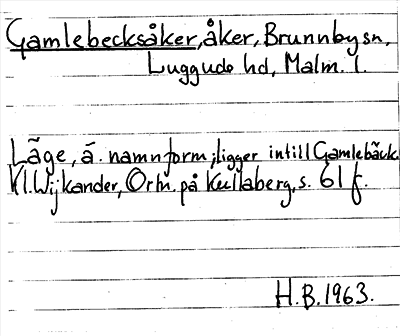 Gamlebecksåker, åker, Brunnby sn,
Luggude hd, Malm. l.
Läge, ä. namnform; ligger intill Gamlebäck.
Kl. Wijkander, Ortn. på Kullaberg, s. 61 f.
H.B. 1963.